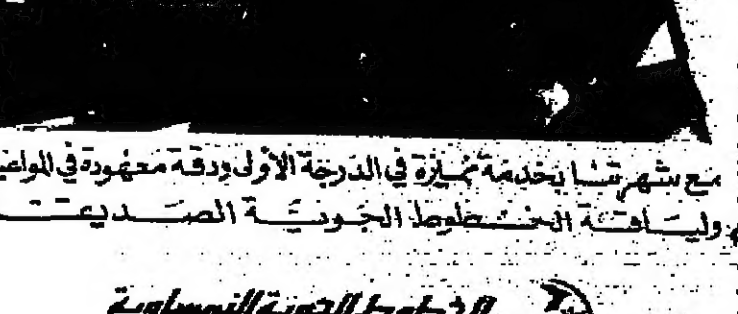 مع شهرتنا بخدمة مميزة في الدرجة الأولى ودقة معهودة في المواعيد
ولياقة الخطوط الجوية الصديقة
الخطوط الجوية النمساوية